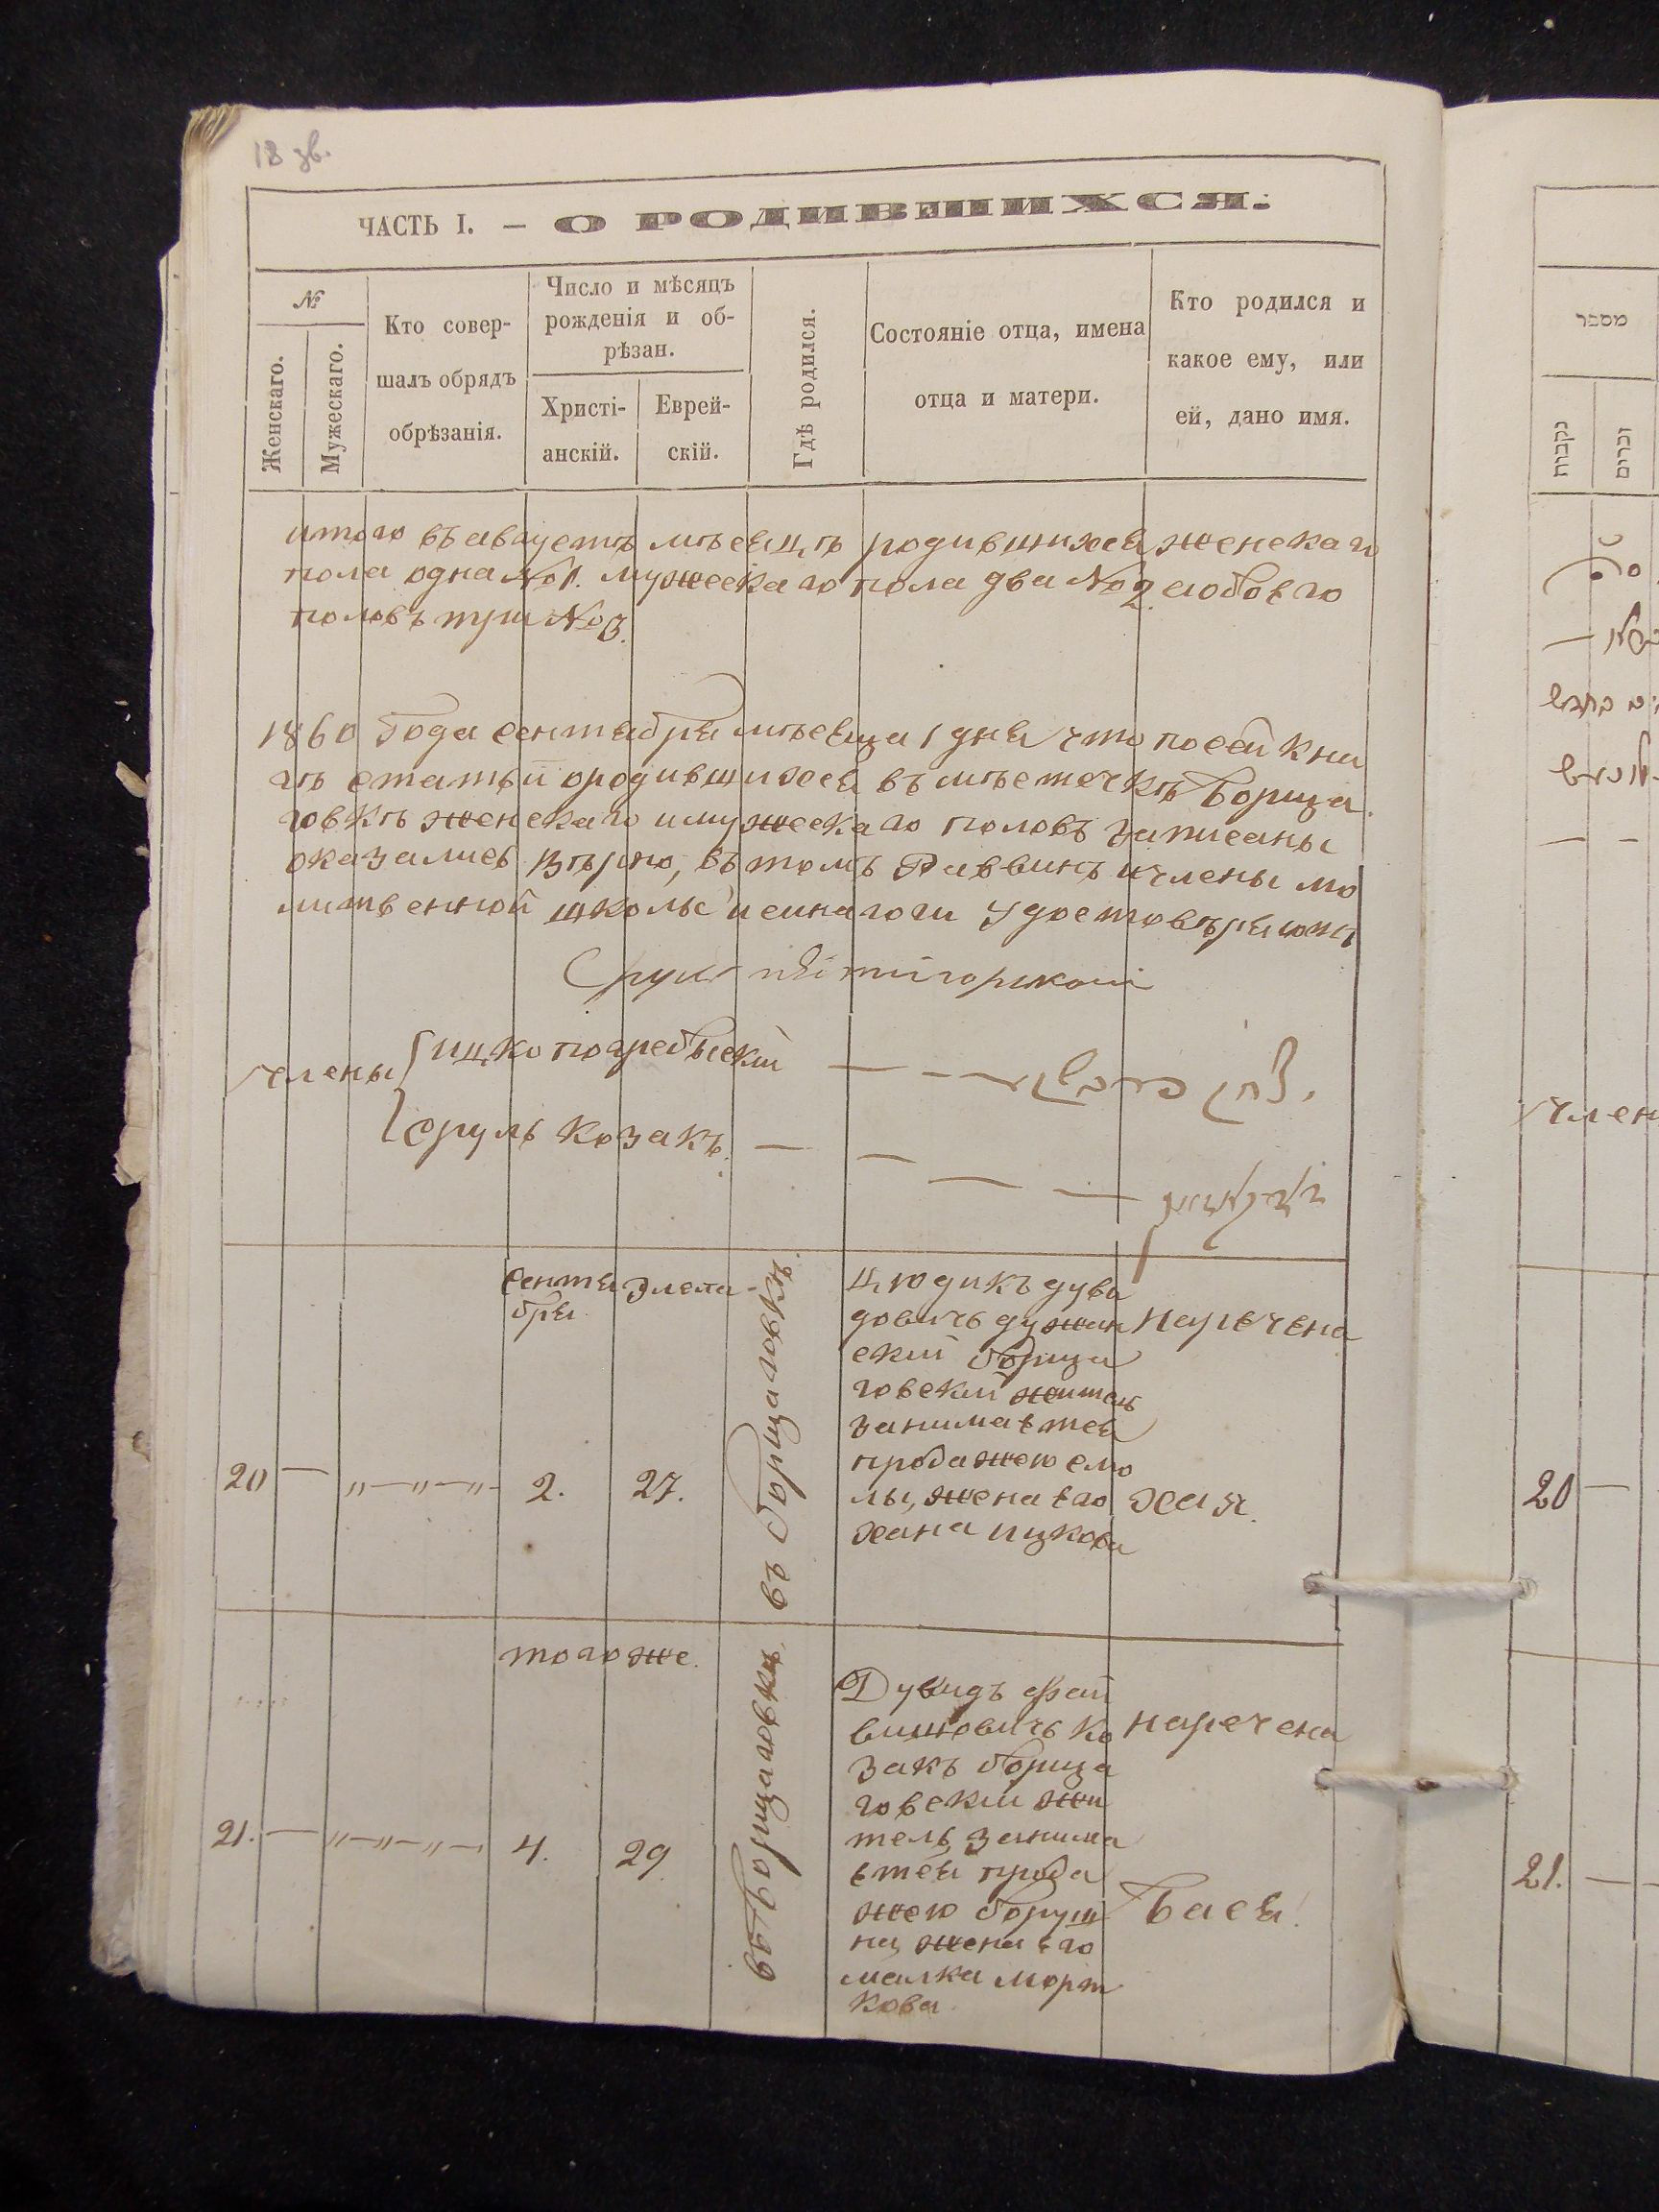 18 зв.
ЧАСТЬ I. — О РОДИВШИХСЯ.
№
Женскаго.
Мужескаго.
Кто совер-
шалъ обрядъ
обрѣзанія.
Число и мѣсяцъ
рожденія и об-
рѣзан.
Христі-
анскій.
Еврей-
скій.
Гдѣ родился.
Состояніе отца, имена
отца и матери.
Кто родился и
какое ему, или
ей, дано имя.
итого въ августѣ мѣсяцѣ родившихся женскаго
пола одна №1. мужескаго пола два №2. а обоего
половъ три №3.
1860 Года сентября мѣсяца 1 дня что по сей кни
гѣ статьи о родившихся въ мѣстечкѣ Борща
говкѣ женскаго и мужескаго половъ записаны
оказались вѣрно, въ томъ Раввинъ и члены мо
литвенной школы и синагоги удостовѣряютъ
Сруль
члены
ицко погребыскій
сруль козакъ.
сентя
бря
Элела
20 — „—„—„- 2. 27.
въ борщаговкѣ
Цюдикъ дува
довичъ дужан
скій борща
говскій житель
занимается
продажею смо
лы, жена его
хана ицкова
наречена
хая.
того же.
21. — „—„—„— 4. 29
въ Борщаговкѣ
Дувидъ фай
вишовичъ ко
закъ борща
говскій жи
тель, занима
ется прода
жею борущ
на, жена его
малка морт
кова
наречена
Бася.
מספר
נקבות
זכרים
член
20 —
21. —